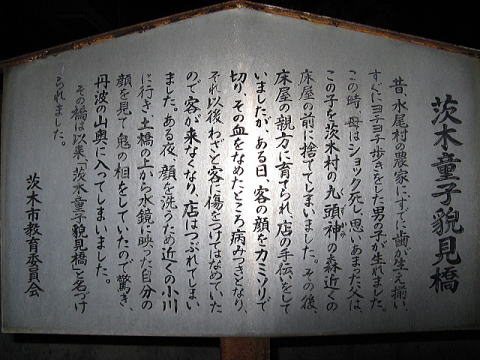 茨木童子貌見橋
昔、水尾村の農家にすでに歯が生え揃い、
すぐにヨチヨチ歩きをした男の子が生れました。
この時、母はショック死し、思いあまった父は、
この子を茨木村の九頭神の森近くの
床屋の前に捨ててしまいました。その後、
床屋の親方に育てられ、店の手伝をして
いましたが、ある日、客の顔をカミソリで
切り、その血をなめたところ、病みつきとなり、
それ以後、わざと客に傷をつけてはなめていた
ので客が来なくなり、店はつぶれてしまい
ました。ある夜、顔を洗うため近くの小川
に行き土橋の上から水鏡に映った自分の
顔を見て鬼の相をしていたので驚き、
丹波の山奥に入ってしまいました。
その橋は以来「茨木童子貌見橋」と名づけ
られました。
茨木市教育委員会